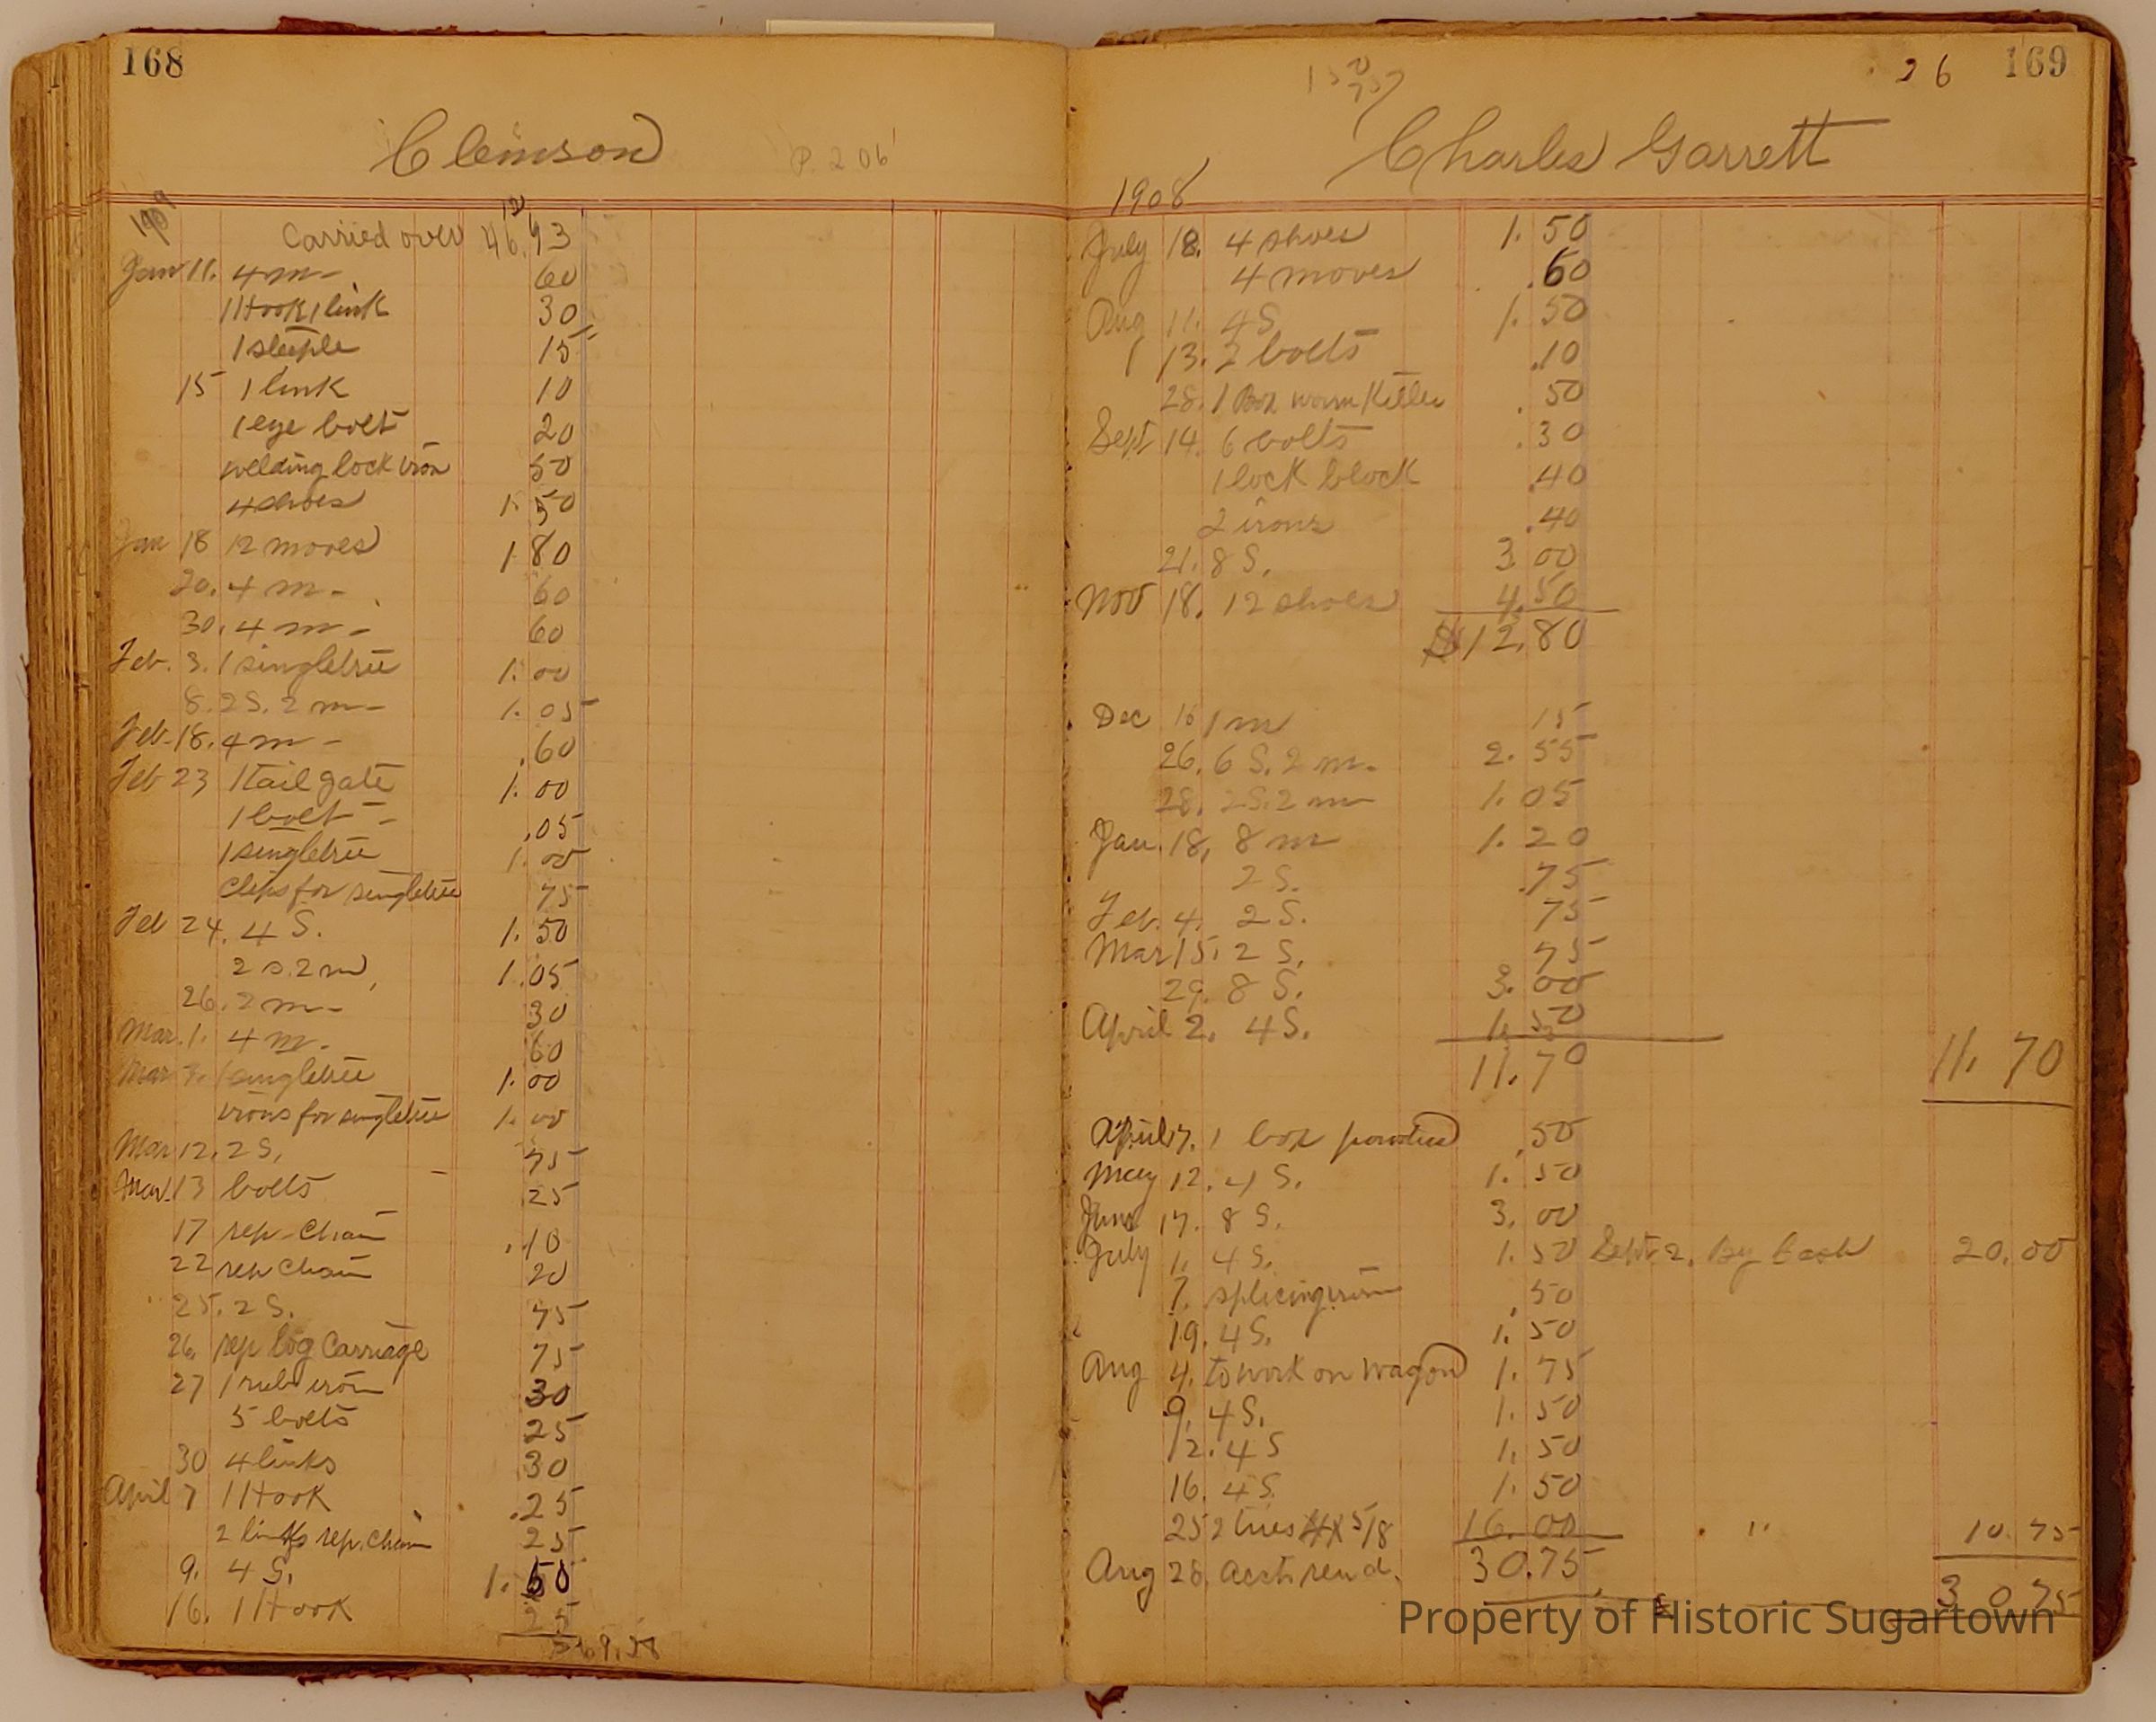 168
Clemson P. 206
1909
Carried over 46.93
Jan 11. 4 m- 60
1 Hook 1 link 30
1 steeple 15
15 1 link 10
1 eye bolt 20
welding lock iron 50
4 shoes 1.50
Jan 18 12 moves 1.80
20. 4 m- 60
30. 4 m- 60
Feb. 3. 1 singletree 1.00
8. 2 S. 2 m- 1.05
Feb-18. 4 m- .60
Feb 23 1 tail gate 1.00
1 bolt- .05
1 singletree 1.00
Clips for singletree 75
Feb 24. 4 S. 1.50
2 S. 2 m 1.05
26. 2 m- 30
Mar. 1. 4 m. 60
Mar 1 singletree 1.00
irons for singletree 1.00
Mar 12. 2 S. 75
Mar. 13 bolts 25
17 rep-Chain .10
22 rep Chain 20
25. 2 S. 75
26. rep log Carriage 75
27 1 rub iron 30
5 bolts 25
30 4 links 30
April 7 1 Hook .25
2 links rep. chain 25
9. 4 S. 1.50
16. 1 Hook 25
69.58
26 169
Charles Garrett
1908
July 18. 4 shoes 1.50
4 moves .60
Aug 11. 4 S 1.50
13. 2 bolts .10
28. 1 Box worm Killer .50
Sept 14. 6 bolts .30
1 lock block .40
2 irons .40
21. 8 S. 3 00
Nov 18. 12 shoes 4.50
$12.80
Dec 16 1 m 15
26. 6 S. 2 m. 2.55
28. 2 S. 2 m 1.05
Jan. 18, 8 m 1.20
2 S. .75
Feb. 4. 2 S. 75
Mar 15. 2 S. 75
29. 8 S. 3.00
April 2. 4 S. 1.50
11.70 11.70
April 17. 1 box powder .50
May 12. 4 S. 1.50
June 17. 8 S. 3.00
July 1. 4 S. 1.50 Sept 2. By Cash 20.00
7. splicing iron .50
19. 4 S. 1.50
Aug 4. to work on wagon 1.75
9. 4 S. 1.50
12. 4 S 1.50
16. 4 S. 1.50
25 2 tires 4 x 5/8 16.00 " 10.75
Aug 28. acct. rend. 30.75
30.75
Property of Historic Sugartown